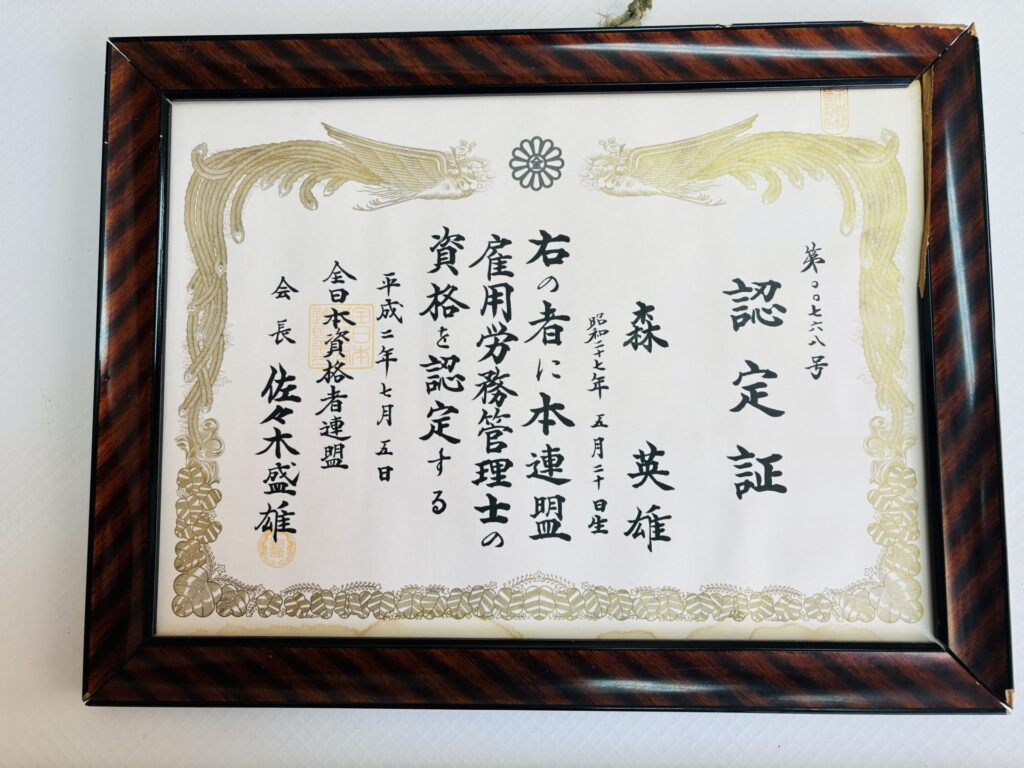 第〇〇七六八号
認定証
森 英雄
昭和二十七年 五月二十日生
右の者に本連盟
雇用労務管理士の
資格を認定する
平成二年七月五日
全日本資格者連盟
会長 佐々木盛雄